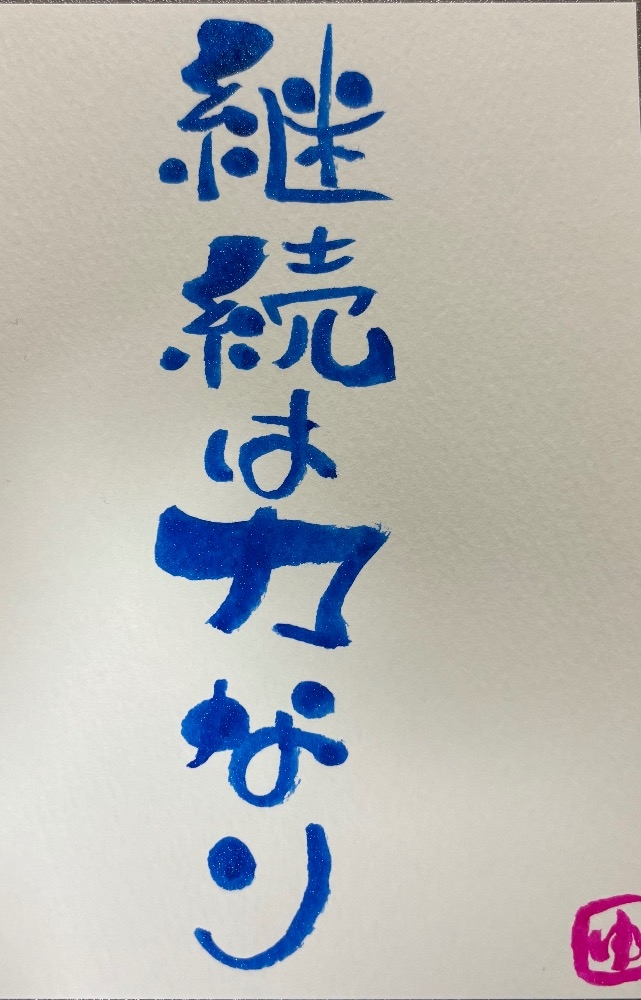 継続は力なり
ゆ